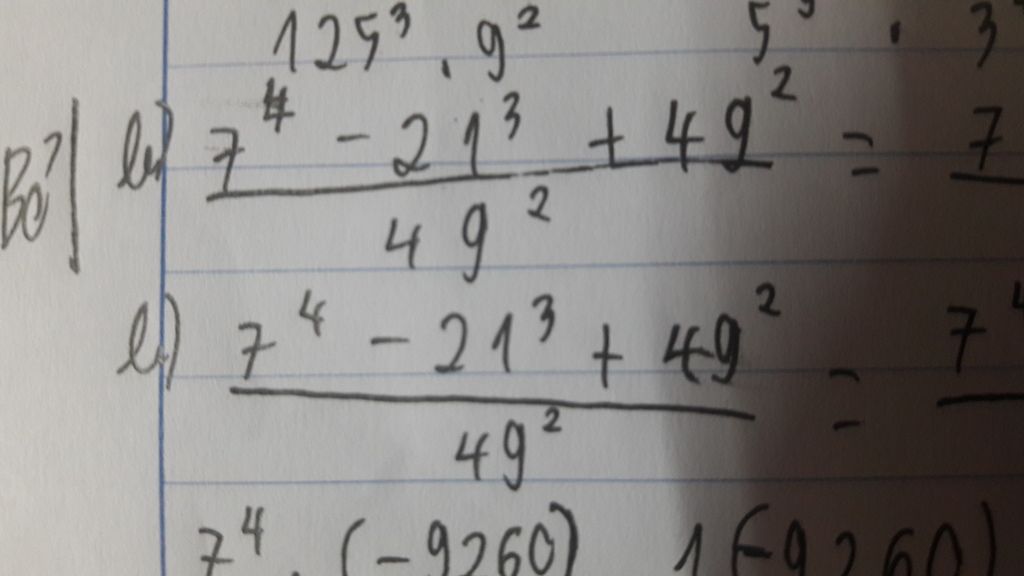 125³ . 9² 5³ . 3
b) 7⁴ - 21³ + 49² = 7
49²
b) 7⁴ - 21³ + 49² = 7⁴
49²
7⁴ . (-9260) 1(-9260)